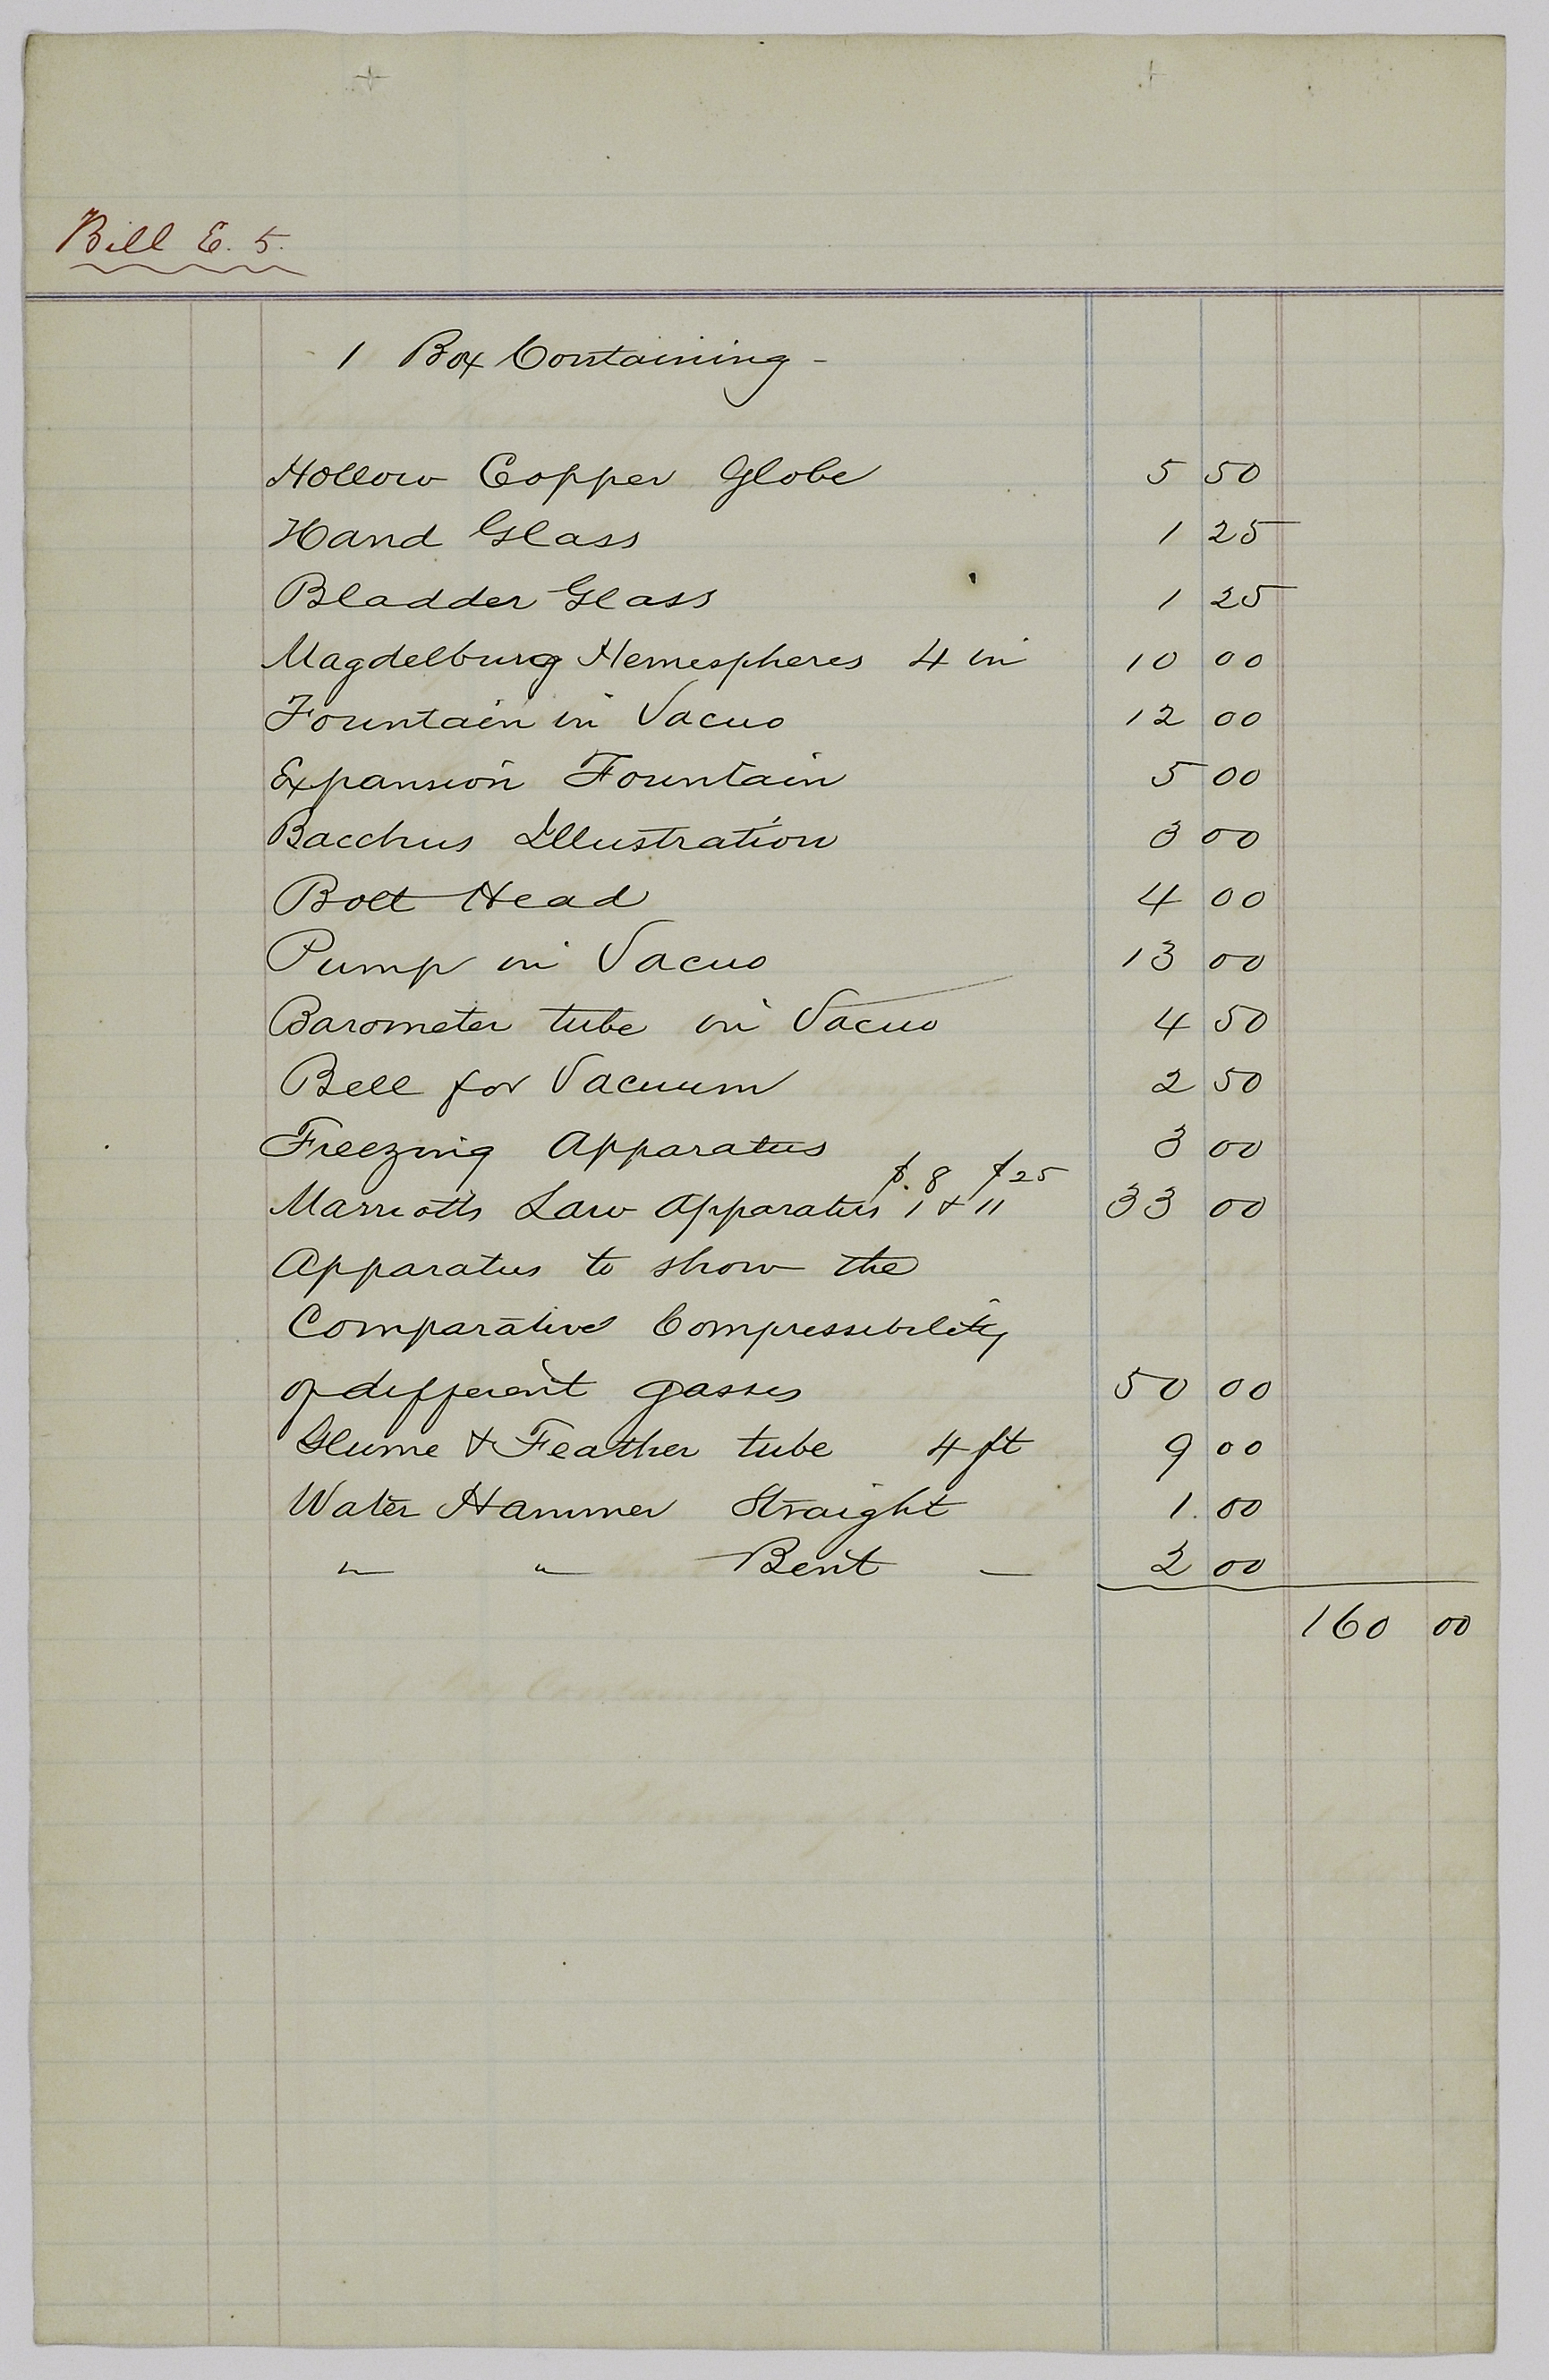 Bill E. 5.
1 Box Containing -
Hollow Copper Globe 5 50
Hand Glass 1 25
Bladder Glass 1 25
Magdelburg Hemespheres 4 in 10 00
Fountain in Vacuo 12 00
Expansion Fountain 5 00
Bacchus Illustration 3 00
Bolt Head 4 00
Pump in Vacuo 13 00
Barometer tube in Vacuo 4 50
Bell for Vacuum 2 50
Freezing Apparatus 3 00
$. 8 $ 25
Marriotts Law Apparatus 1 & 11 33 00
Apparatus to show the
Comparative Compressibility
of different gasses 50 00
Glume & Feather tube 4 ft 9 00
Water Hammer Straight 1. 00
" " Bent — 2 00
160 00